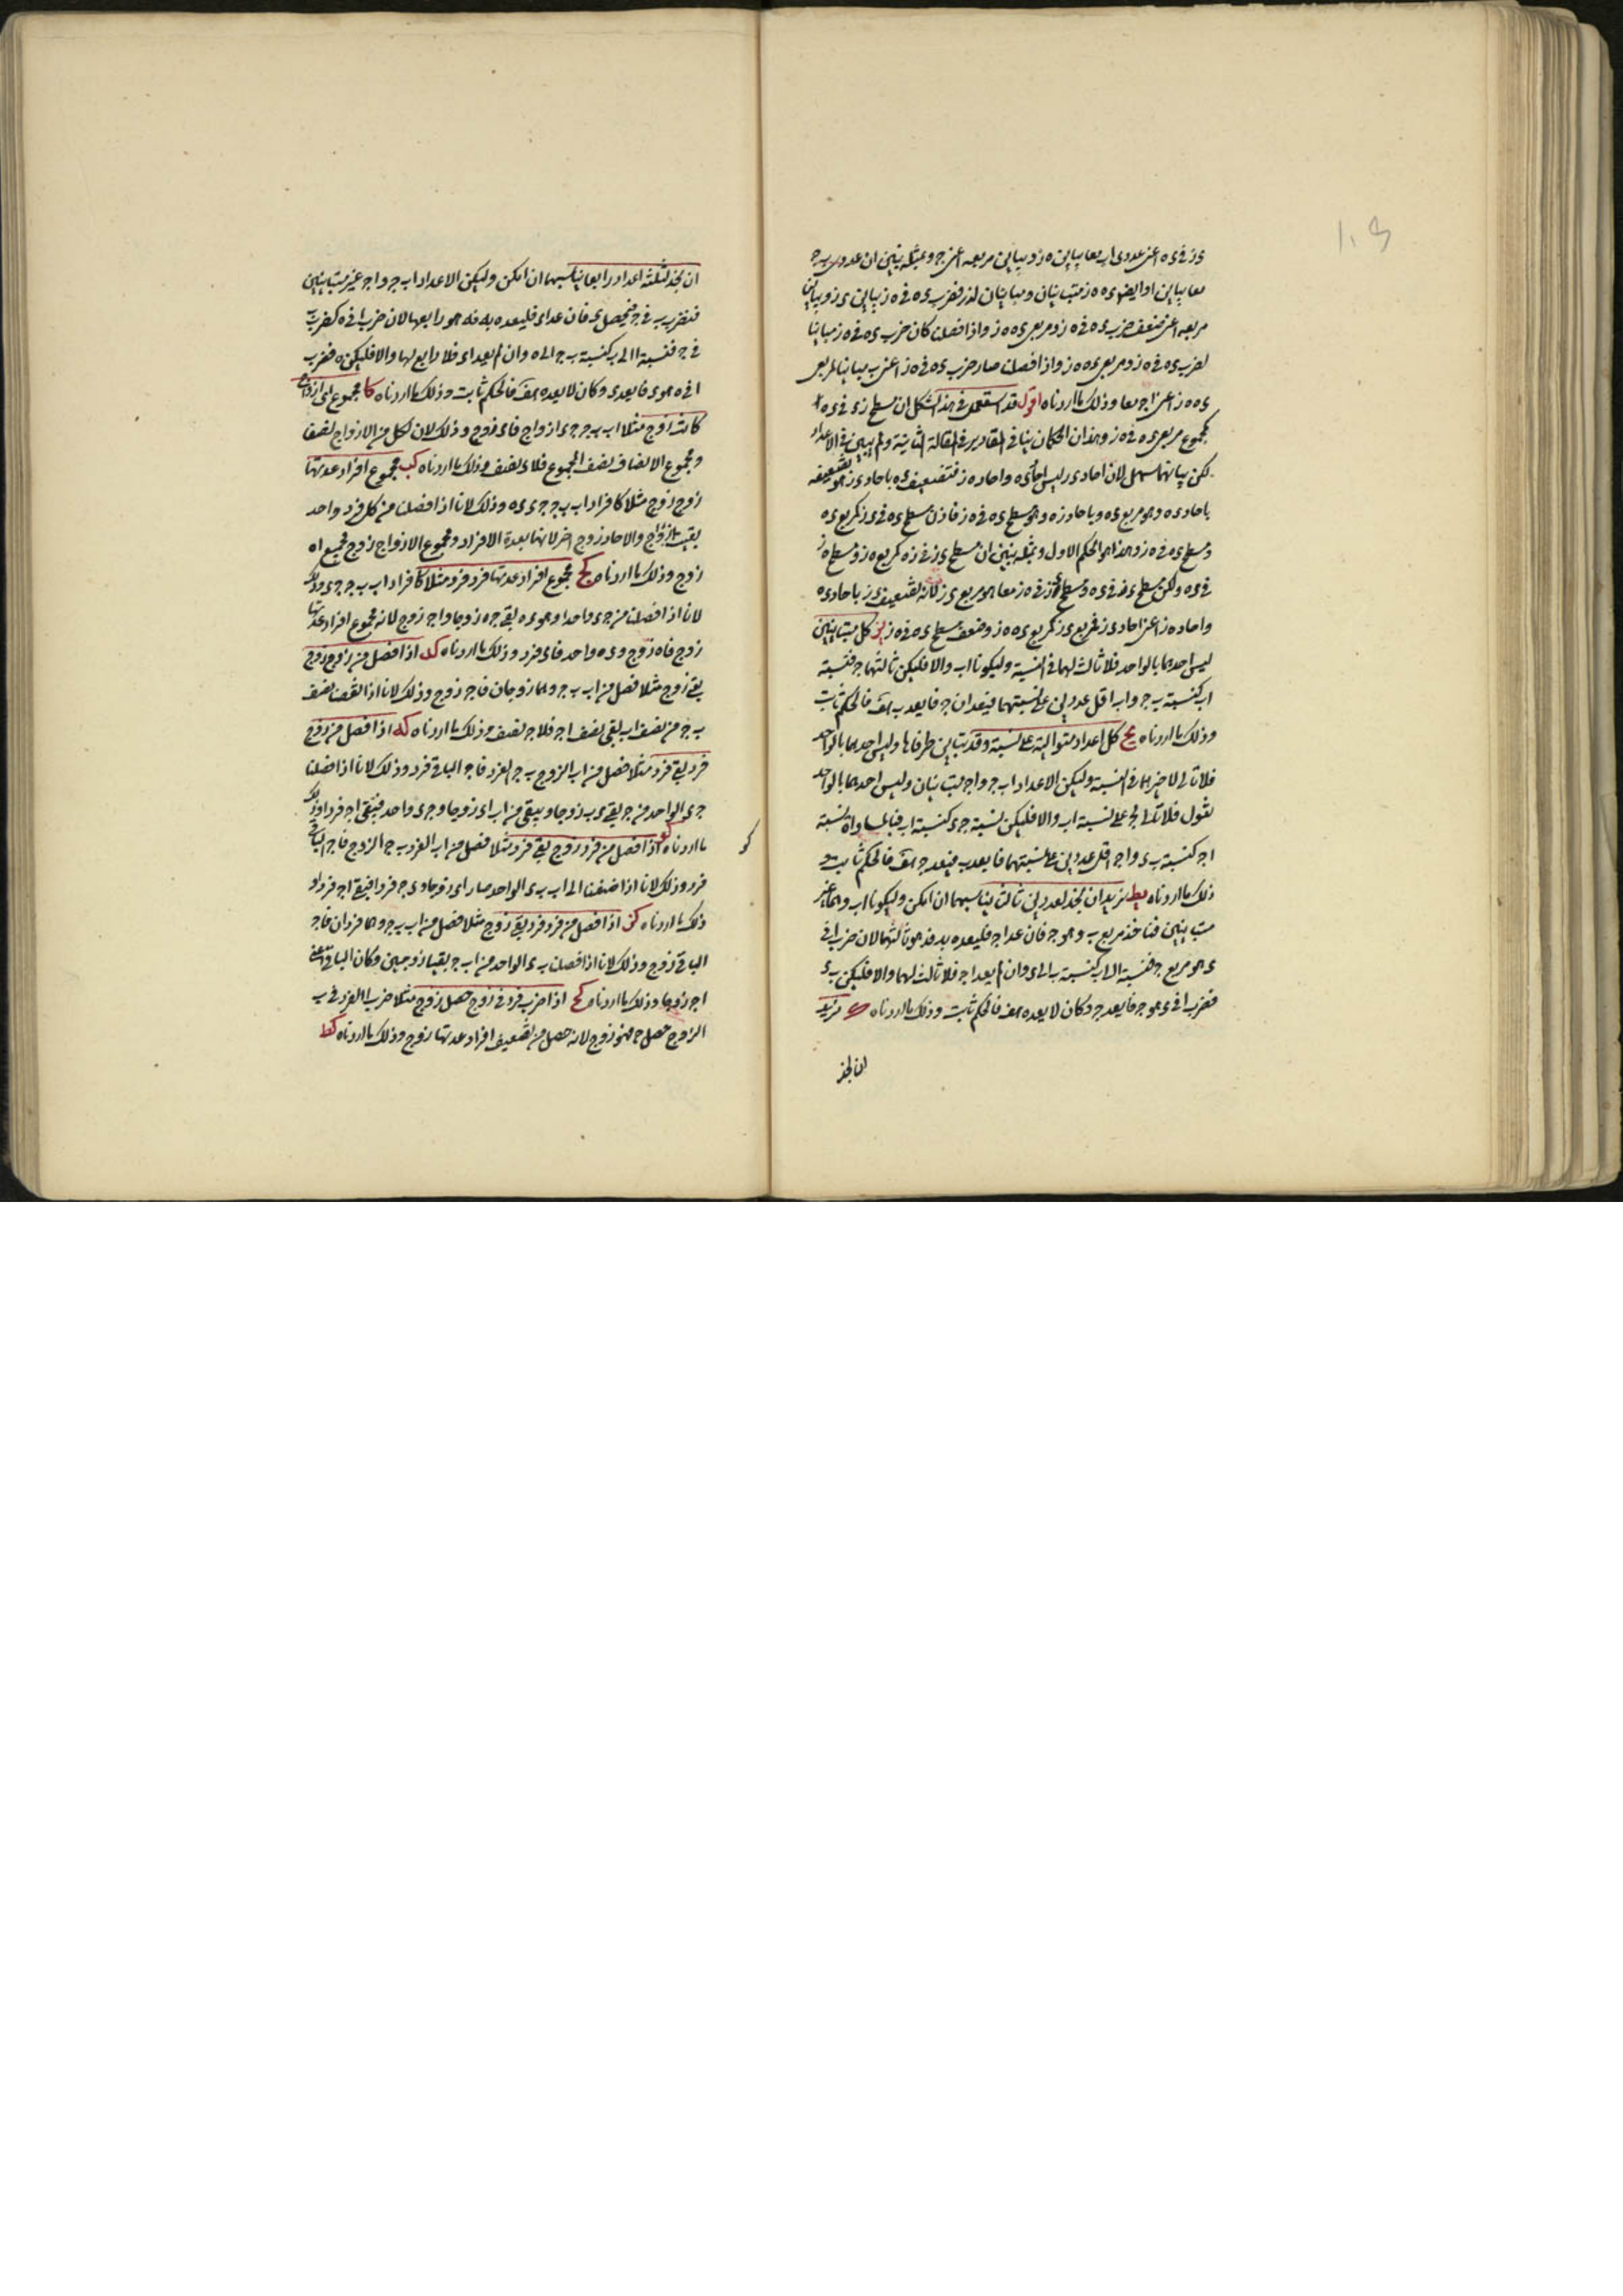 ى ز فى ى ه اعنى عددى ا ب معا يباين ه ز ويباين مربعه اعنى ج وبمثله نبين ان عددى ب ج
معا يباين ا وايضا ى ه ه ز متباينان ومباينان لذر فضرب ى ه فى ه ز يباين ى ز ويباين
مربعه اعنى ضعف ضرب ى ه فى ه ز ومربعى ى ه ه ز واذا فصلنا كان ضرب ى ه فى ه ز مباينا
لضرب ى ه فى ه ز ومربعى ى ه ه ز واذا فصلنا صار ضرب ى ه فى ه ز اعنى ب مباينا لمربعى
ى ه ه ز اعنى ا ج معا وذلك ما اردناه اقول قد استعمل فى هذا الشكل ان مسطح ز ى فى ى ه
كمجموع مربع ى ه فى ه ز وهذان الحكمان بينا فى المقادير فى المقالة الثانية ولم يبين فى الاعداد
لكن بيانهما سهل لان احاد ى ز ليس احاد ى ه واحاد ه ز فتضعيف ى ه باحاد ى ز هو تضعيفه
باحاد ى ه وهو مربع ى ه وباحاد ز ه وهو مسطح ى ه فى ه ز فاذن مسطح ى ه فى ى ز كمربع ى ه
ومسطح ى ه فى ه ز وهذا هو الحكم الاول وبمثله نبين ان مسطح ى ز فى ز ه كمربع ه ز ومسطح ه ز
فى ى ه ولكن مسطح ى ز فى ى ه ومسطح ى ز فى ه ز معا هو مربع ى ز لانه تضعيف ى ز باحاد ى ه
واحاد ه ز اعنى احاد ى ز فمربع ى ز كمربع ى ه ه ز وضعف مسطح ى ه فى ه ز يز كل متباينين
ليس احدهما بالواحد فلا ثالث لهما فى النسبة وليكونا ا ب والا فليكن ثالثهما ج فنسبة
ا ب كنسبة ب ج و ا ب اقل عددين على نسبتهما فيعدان ج فا يعد ب هف فالحكم ثابت
وذلك ما اردناه يح كل اعداد متوالية على نسبة وقد تباين طرفاها وليس احدهما بالواحد
فلا تالى لاخيرهما فى النسبة وليكن الاعداد ا ب ج و ا ج متباينان وليس احدهما بالواحد
نقول فلا تالى لج على نسبة ا ب والا فليكن نسبة ج ى كنسبة ا ب فبالمساواة نسبة
ا ج كنسبة ب ى و ا ج اقل عددين على نسبتهما فا يعد ب فيعد ج هف فالحكم ثابت و
ذلك ما اردناه يط نريد ان نجد لعددين ثالثا يناسبهما ان امكن وليكونا ا ب وهما غير
متباينين فناخذ مربع ب وهو ج فان عد ا ج فليعده بد فد هو ثالثهما لان ضرب ا فى
ى هو مربع ج فنسبة ا الى ب كنسبة ب الى ى وان لم يعد ا ج فلا ثالث لهما والا فليكن ب ى
فضرب ا فى ى هو ج فا يعد ج وكان لا يعده هف فالحكم ثابت وذلك ما اردناه ك نريد
ان نجد
ان نجد لثلثة اعداد رابعا يناسبها ان امكن وليكن الاعداد ا ب ج و ا ج غير متباينين
فنضرب ب فى ج فيحصل ى فان عد ا ى فليعده به فه هو رابعها لان ضرب ا فى ه كضرب ب
فى ج فنسبة ا الى ب كنسبة ج الى ه وان لم يعد ا ى فلا رابع لها والا فليكن ه فضرب
ا فى ه هو ى فا يعد ى وكان لا يعده هف فالحكم ثابت وذلك ما اردناه كا مجموع اى ازواج
كانت زوج مثلا ا ب ب ج ج ى ازواج فا ى زوج وذلك لان لكل من الازواج نصف
ومجموع الانصاف نصف المجموع فلا ى نصف وذلك ما اردناه كب مجموع افراد عدتها
زوج زوج مثلا كافراد ا ب ب ج ج ى ى ه وذلك لانا اذا فصلنا من كل فرد واحد
بقيت ازواج والاحاد زوج اخر لانها بعدة الافراد ومجموع الازواج زوج فجميع ا ه
زوج وذلك ما اردناه كج مجموع افراد عدتها فرد فرد مثلا كافراد ا ب ب ج ج ى وذلك
لانا اذا فصلنا من ج ى واحدا وهو ى ه بقى ج ه زوجا و ا ج زوج لانه مجموع افراد عدتها
زوج فا ه زوج و ى ه واحد فا ى فرد وذلك ما اردناه كد اذا فصل من زوج زوج
بقى زوج مثلا فصل من ا ب ب ج وهما زوجان فا ج زوج وذلك لانا اذا القينا نصف
ب ج من نصف ا ب بقى نصف ا ج فلا ج نصف وذلك ما اردناه كه اذا فصل من زوج
فرد بقى فرد مثلا فصل من ا ب الزوج ب ج الفرد فا ج الباقى فرد وذلك لانا اذا فصلنا
ج ى الواحد من ج بقى ى ب زوجا ويبقى من ا ب ا ى زوجا و ج ى واحد فيبقى ا ج فردا وذلك
ما اردناه كو اذا فصل من فرد زوج بقى فرد مثلا فصل من ا ب الفرد ب ج الزوج فا ج الباقى
فرد وذلك لانا اذا اضفنا الى ا ب ب ى الواحد صار ا ى زوجا و ى ج فردا فيبقى ا ج فردا و
ذلك ما اردناه كز اذا فصل من فرد فرد بقى زوج مثلا فصل من ا ب ب ج وهما فردان فا ج
الباقى زوج وذلك لانا اذا فصلنا ب ى الواحد من ا ب ج بقيا زوجين وكان الباقى اعنى
ا ج زوجا وذلك ما اردناه كح اذا ضرب فرد فى زوج حصل زوج مثلا ضرب ا الفرد فى ب
الزوج حصل ج فهو زوج لانه حصل من تضعيف افراد عدتها زوج وذلك ما اردناه كط